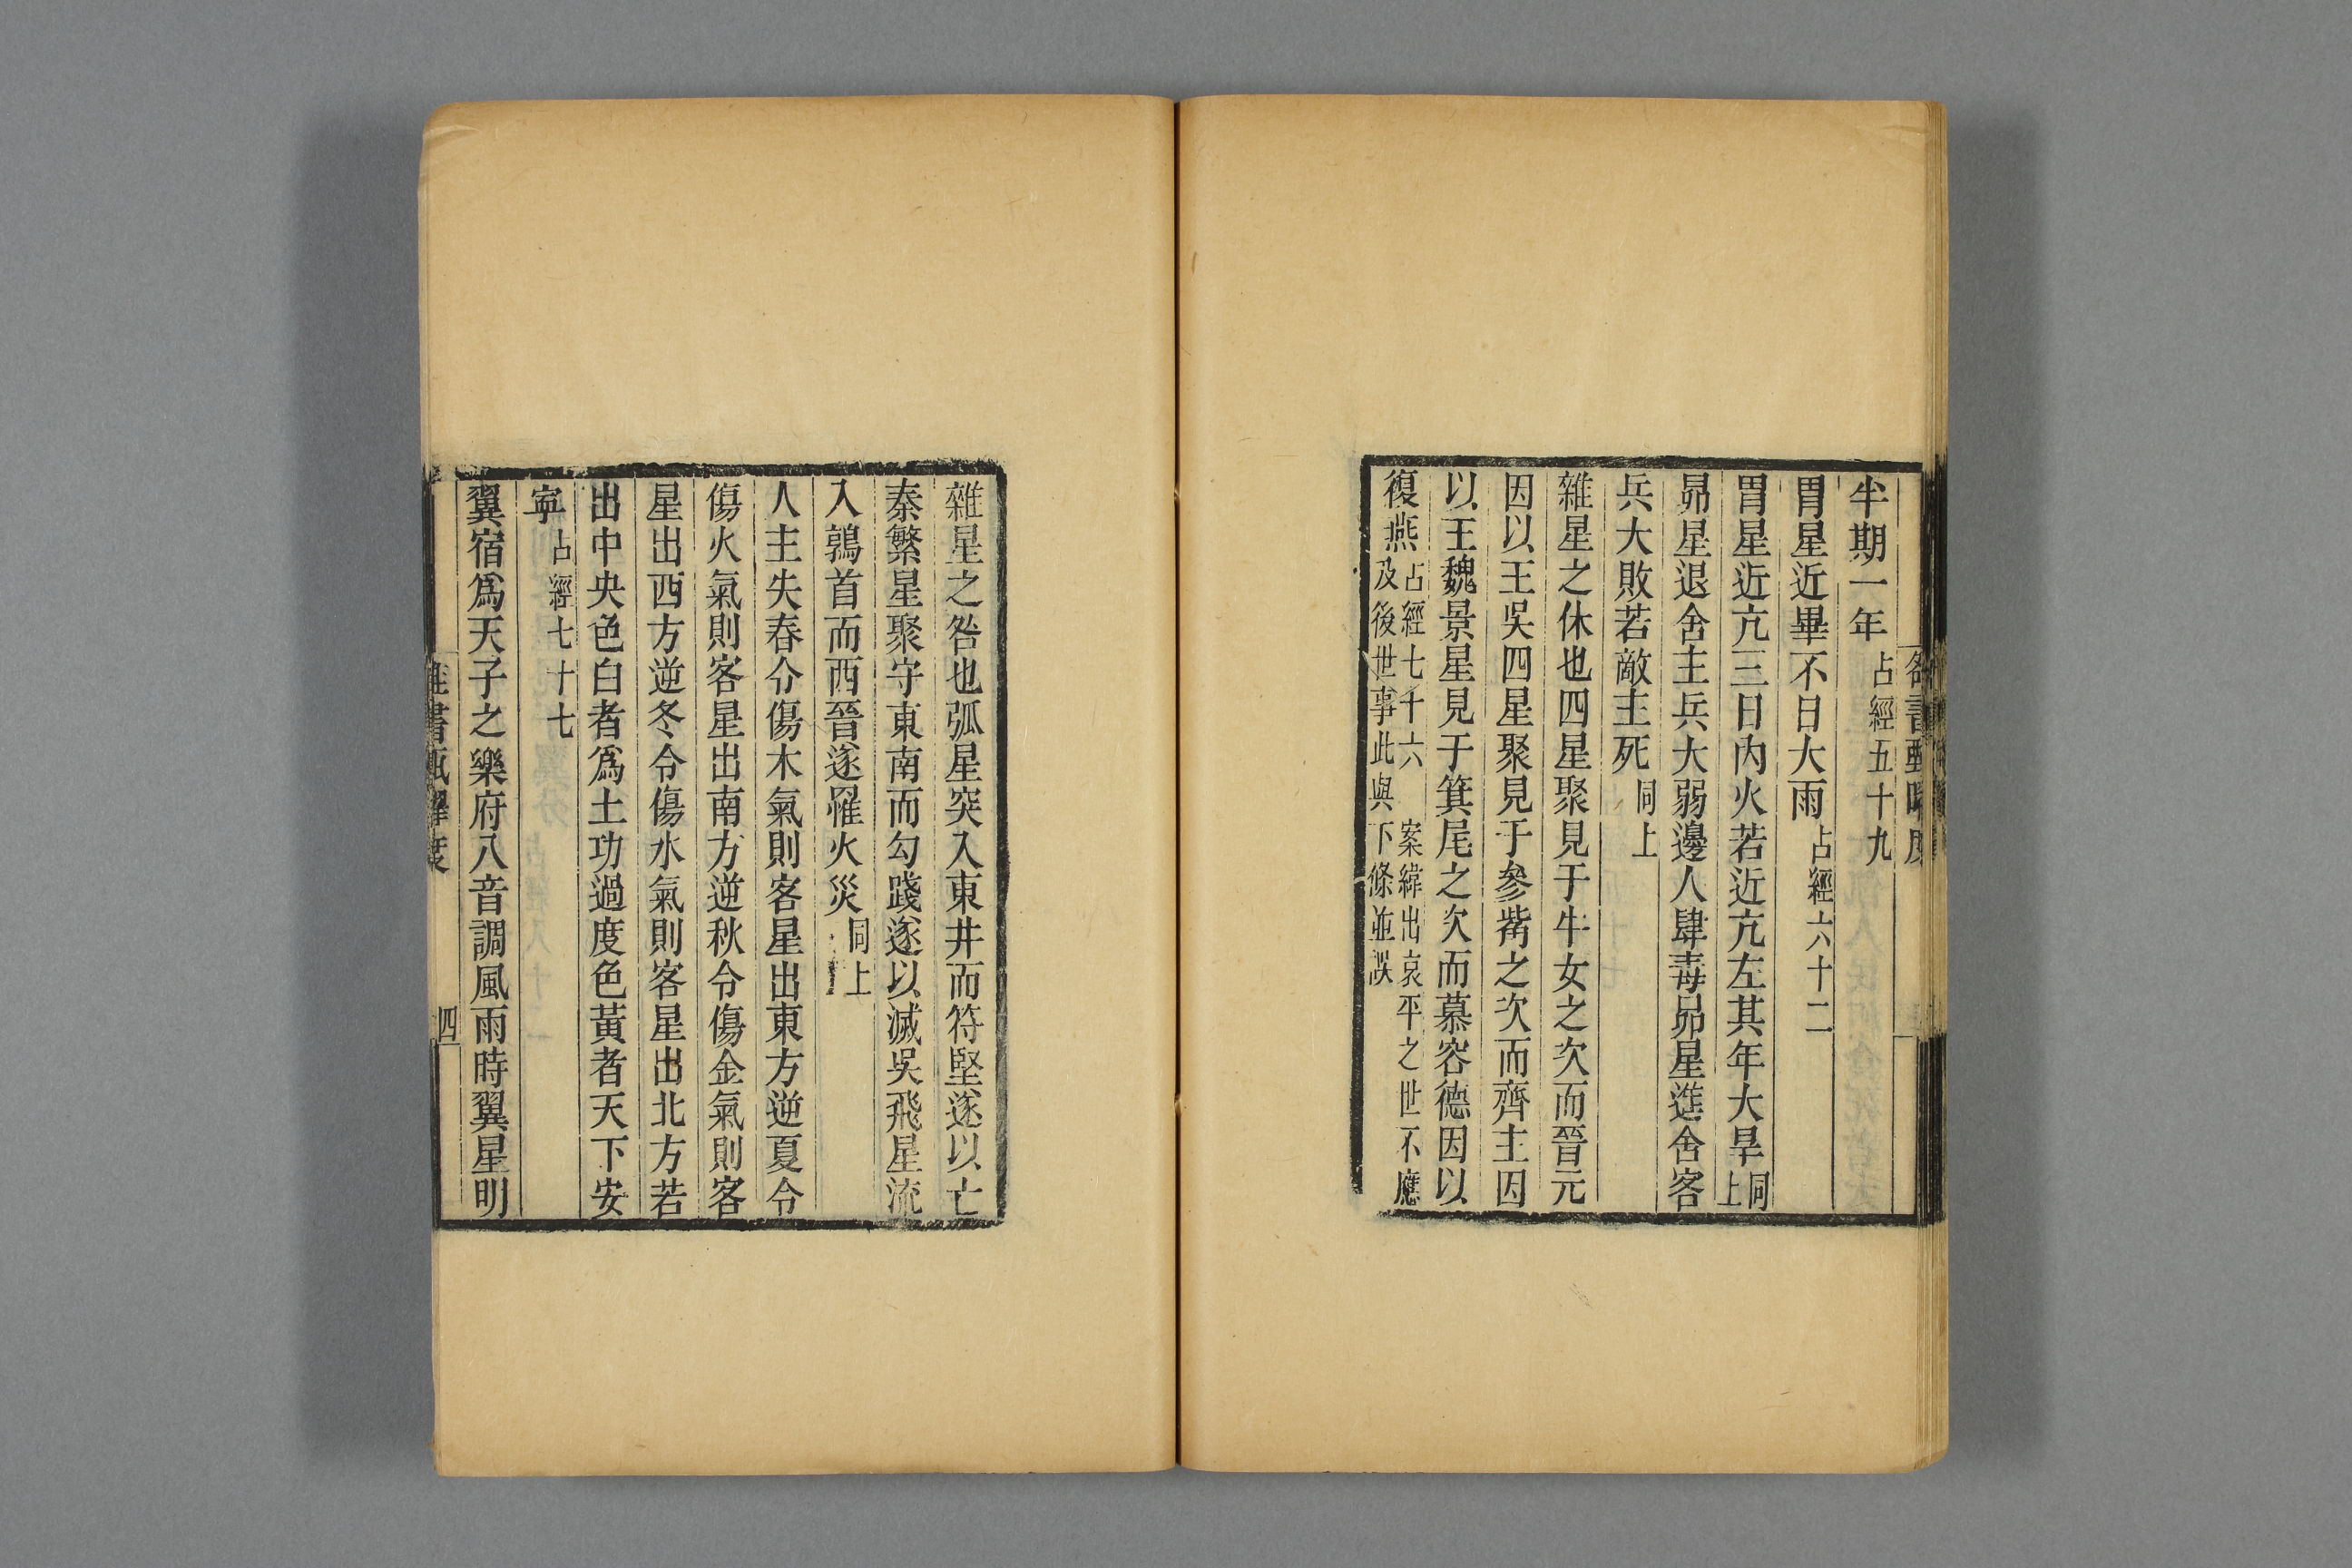 半期一年占經五十九
胃星近畢不日大雨占經六十二
胃星近亢三日內火若近亢左其年大旱同上
昴星退舍主兵大弱邊人肆毒昴星進舍客
兵大敗若敵主死同上
雜星之休也四星聚見于牛女之次而晉元
因以王吳四星聚見于參觜之次而齊主因
以王魏景星見于箕尾之次而慕容德因以
復燕占經七十六 案緯出哀平之世不應
及後世事此與下條並誤
雜星之咎也弧星突入東井而符堅遂以亡
秦繁星聚守東南而勾踐遂以滅吳飛星流
入鶉首而西晉遂罹火災同上
人主失春令傷木氣則客星出東方逆夏令
傷火氣則客星出南方逆秋令傷金氣則客
星出西方逆冬令傷水氣則客星出北方若
出中央色白者爲土功過度色黃者天下安
寧占經七十七
翼宿爲天子之樂府八音調風雨時翼星明
四